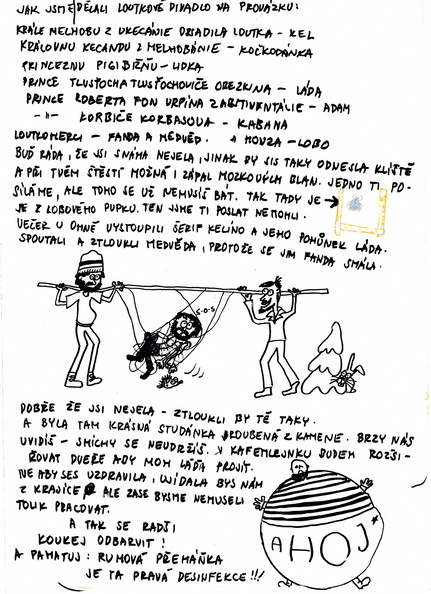 JAK JSME DĚLALI LOUTKOVÉ DIVADLO NA PROVÁZKU:
KRÁLE MELHOBU Z UKECÁNIE OBIADILA LOUTKA - KEL
KRÁLOVNU KECANDU Z MELHOBÁNIE - KOČKODÁNKA
PRINCEZNU PIGI BÍŽŇU - LIDKA
PRINCE TLUSŤOCHA TLUSŤOCHOVIČE OBEZKINA - LÁĎA
PRINCE ROBERTA FON URPÍNA ZABITIVENTÁLIE - ADAM
-"- KORBIČE KORBASOVA - KABANA
LOUTKOHERCI - FANDA A MEDVĚD. HOVZA - LOBO
BUĎ RÁDA, ŽE JSI S NÁMA NEJELA, JINAK BY SIS TAKY ODNESLA KLÍŠTĚ
A PŘI TVÉM ŠTĚSTÍ MOŽNÁ I ZÁPAL MOZKOVÝCH BLAN. JEDNO TI PO-
SÍLÁME, ALE TOHO SE UŽ NEMUSÍŠ BÁT. TAK TADY JE
JE Z LOBOVÉHO PUPKU. TEN JSME TI POSLAT NEMOHLI.
VEČER U OHNĚ VYSTOUPILI ŠERIF KELÍNO A JEHO POHŮNEK LÁĎA.
SPOUTALI A ZTLOUKLI MEDVĚDA, PROTOŽE SE JIM FANDA SMÁLA.
S-O-S
DOBŘE ŽE JSI NEJELA - ZTLOUKLI BY TĚ TAKY.
A BYLA TAM KRÁSNÁ STUDÁNKA ROUBENÁ Z KAMENE. BRZY NÁS
UVIDÍŠ - SMÍCHY SE NEUDRŽÍŠ. V KAFEMLEJNKU BUDEM ROZŠI-
ŘOVAT DVEŘE ABY MOH LÁĎA PROJÍT.
NE ABYSES UZDRAVILA, UJÍDALA BYS NÁM
Z KRAJÍCE ALE ZASE BYSME NEMUSELI
TOLIK PRACOVAT.
A TAK SE RADŠI
KOUKEJ ODBARVIT!
A PAMATUJ: RUMOVÁ PŘEMÁŇKA
JE TA PRAVÁ DESINFEKCE!!!
AHOJ